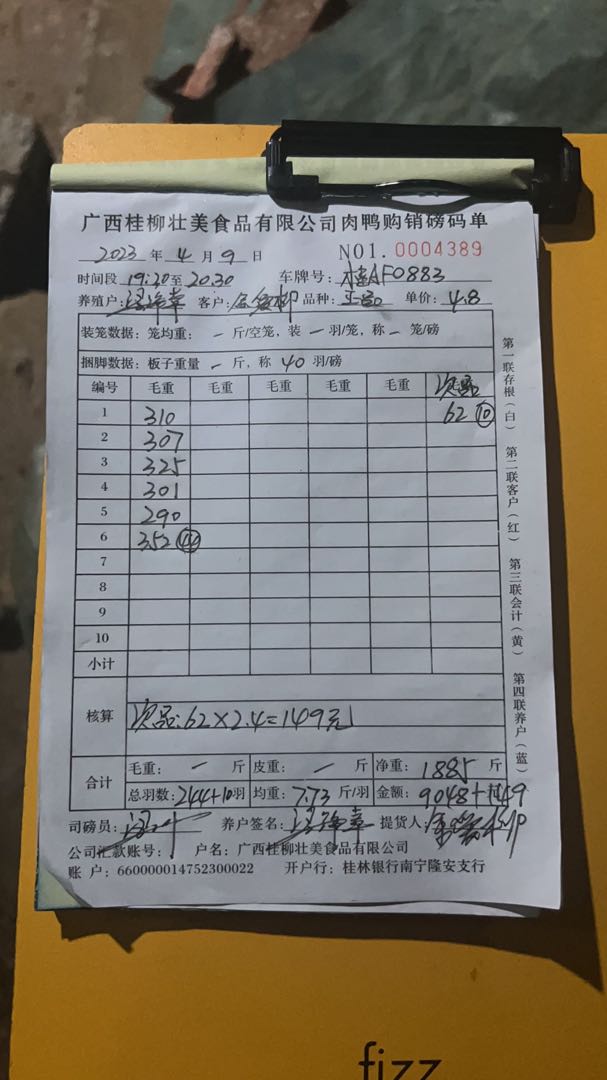 广西桂柳壮美食品有限公司肉鸭购销磅码单
2023 年 4 月 9 日 NO1. 0004389
时间段 19:20至20:30 车牌号: 桂AF0883
养殖户: 客户: 品种: 正品 单价: 4.8
装笼数据: 笼均重: — 斤/空笼, 装 — 羽/笼, 称 — 笼/磅
捆脚数据: 板子重量 — 斤, 称 40 羽/磅
编号 毛重 毛重 毛重 毛重 毛重 次品
1 310 62 ⑩
2 307
3 325
4 301
5 290
6 352 ㊹
7
8
9
10
小计
核算 次品: 62×2.4=149元
合计 毛重: — 斤 皮重: — 斤 净重: 1885 斤
总羽数: 244+10羽 均重: 7.73 斤/羽 金额: 9048+149
司磅员: 养户签名: 提货人:
公司汇款账号: 户名: 广西桂柳壮美食品有限公司
账 户: 660000014752300022 开户行: 桂林银行南宁隆安支行
第一联存根(白) 第二联客户(红) 第三联会计(黄) 第四联养户(蓝)
fizz